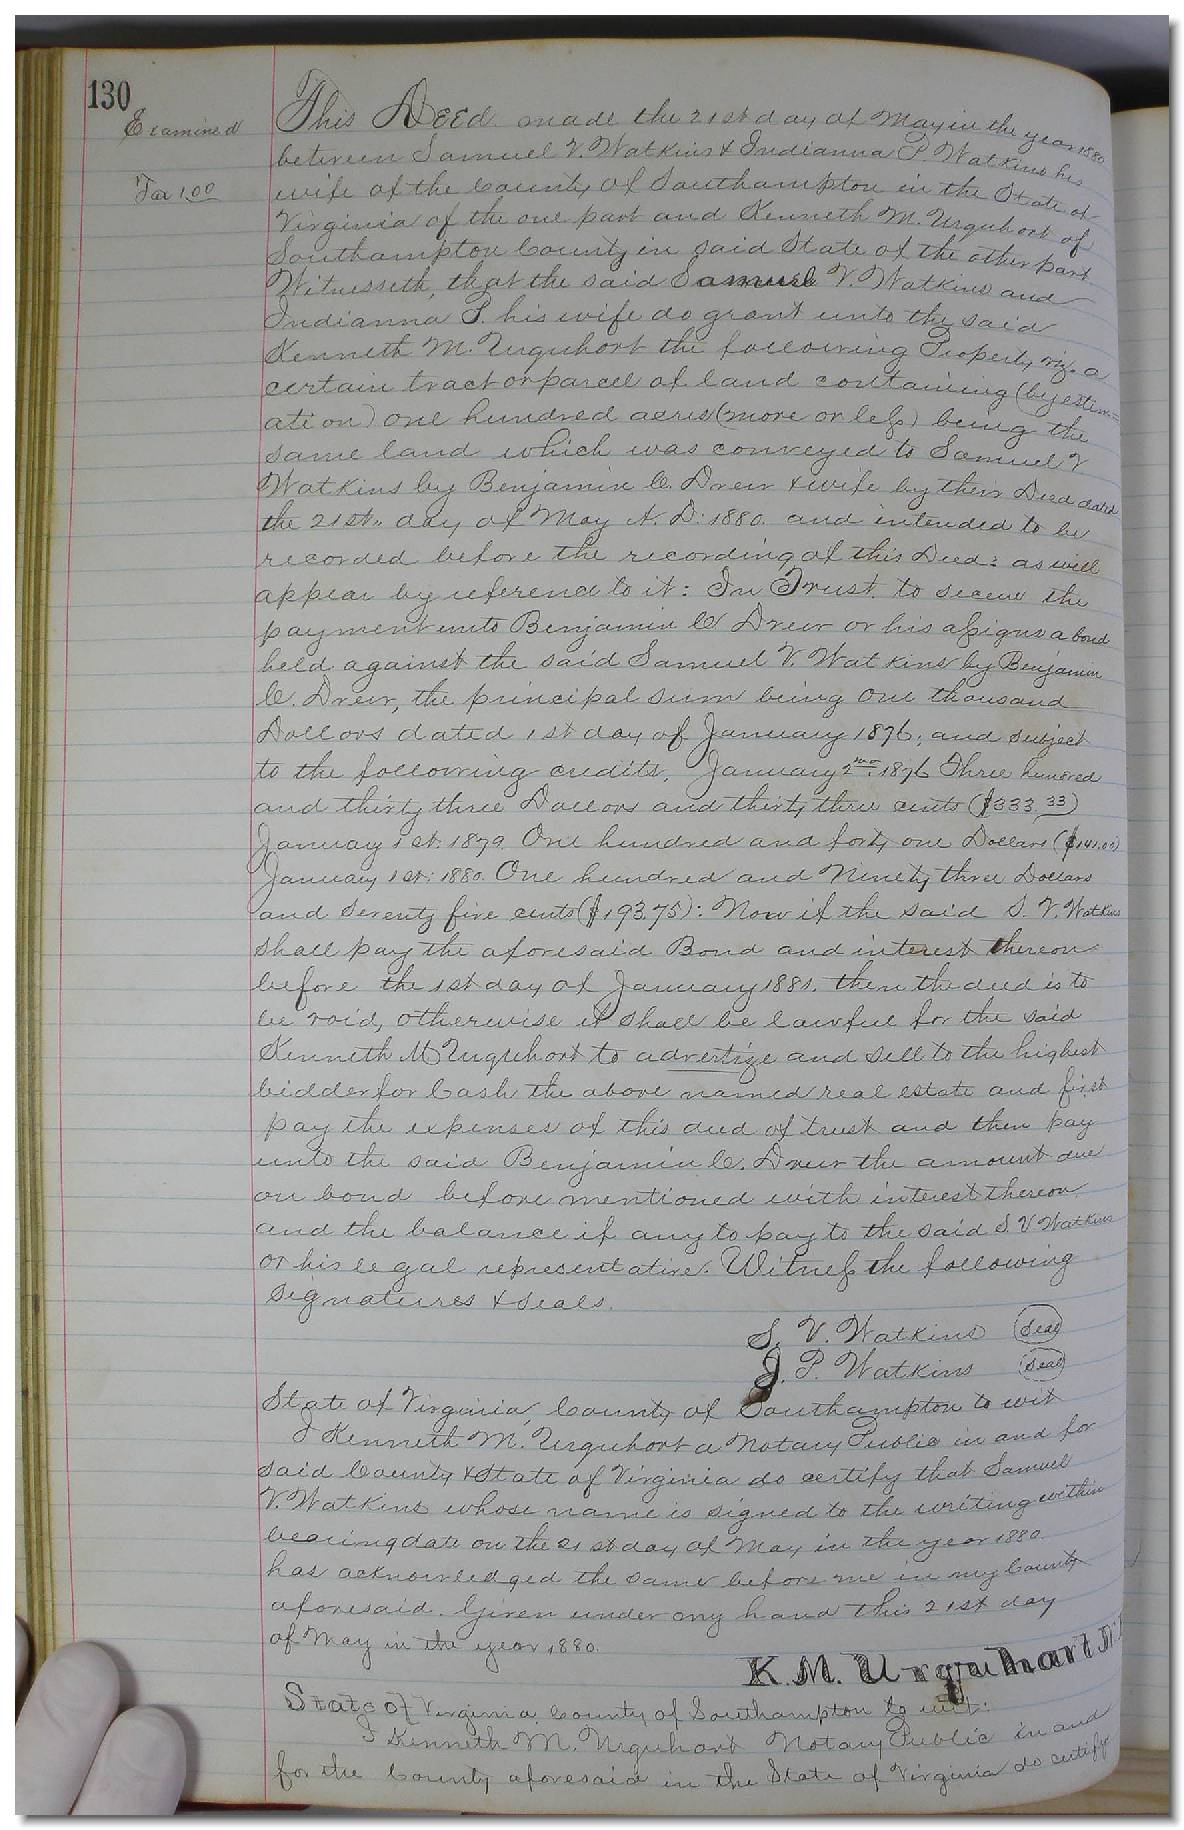 130
Examined
Tax 1.00
This Deed made the 21st day of May in the year 1880
between Samuel V. Watkins & Indianna P Watkins his
wife of the County of Southampton in the State of
Virginia of the one part and Kenneth M. Urquhart of
Southampton County in said State of the other part
Witnesseth, that the said Samuel V. Watkins and
Indianna P. his wife do grant unto the said
Kenneth M. Urquhart the following Property, viz. a
certain tract or parcel of land containing (by estim=
ation) one hundred acres (more or less) being the
same land which was conveyed to Samuel V
Watkins by Benjamin C. Drew & wife by their Deed dated
the 21st.. day of May A. D: 1880. and intended to be
recorded before the recording of this Deed: as will
appear by reference to it: In Trust. to secure the
payment unto Benjamin C Drew or his assigns a bond
held against the said Samuel V. Watkins by Benjamin
C. Drew, the principal sum being One thousand
Dollars dated 1st day of January 1876; and subject
to the following credits, January 1876 Three hundred
and thirty three Dollars and thirty three cents ($333.33)
January 1st. 1879. One hundred and forty one Dollars ($141.00)
January 1st: 1880. One hundred and Ninety three Dollars
and Seventy five cents ($193.75): Now if the said S. V. Watkins
shall pay the aforesaid Bond and interest thereon
before the 1st day of January 1881. then the deed is to
be void, otherwise it shall be lawful for the said
Kenneth M Urquhart to advertize and sell to the highest
bidder for Cash the above named real estate and first
pay the expenses of this deed of trust and then pay
unto the said Benjamin C. Drew the amount due
on bond before mentioned with interest thereon.
and the balance if any to pay to the said S V Watkins
or his legal representative. Witness the following
signatures & seals.
S. V. Watkins Seal
J. P. Watkins Seal
State of Virginia, County of Southampton to wit
I Kenneth M. Urquhart a Notary Public in and for
said County & State of Virginia do certify that Samuel
V. Watkins whose name is signed to the writing within
bearing date on the 21st day of May in the year 1880
has acknowledged the same before me in my County
aforesaid. Given under my hand this 21st day
of May in the year 1880.
K. M. Urquhart
State of Virginia County of Southampton to wit:
I Kenneth M. Urquhart Notary Public in and
for the County aforesaid in the State of Virginia do certify